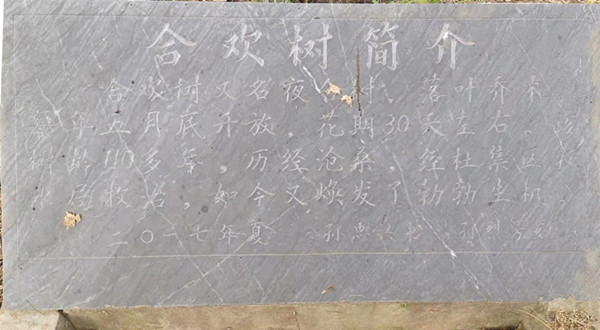 合欢树简介
合欢树又名夜合树、落叶乔木，
每年五月底开放，花期30天左右。该
树龄110多年，历经沧桑，经杜集区
水局救治，如今又焕发了勃勃生机。
二〇一七年夏 孙 书 孙